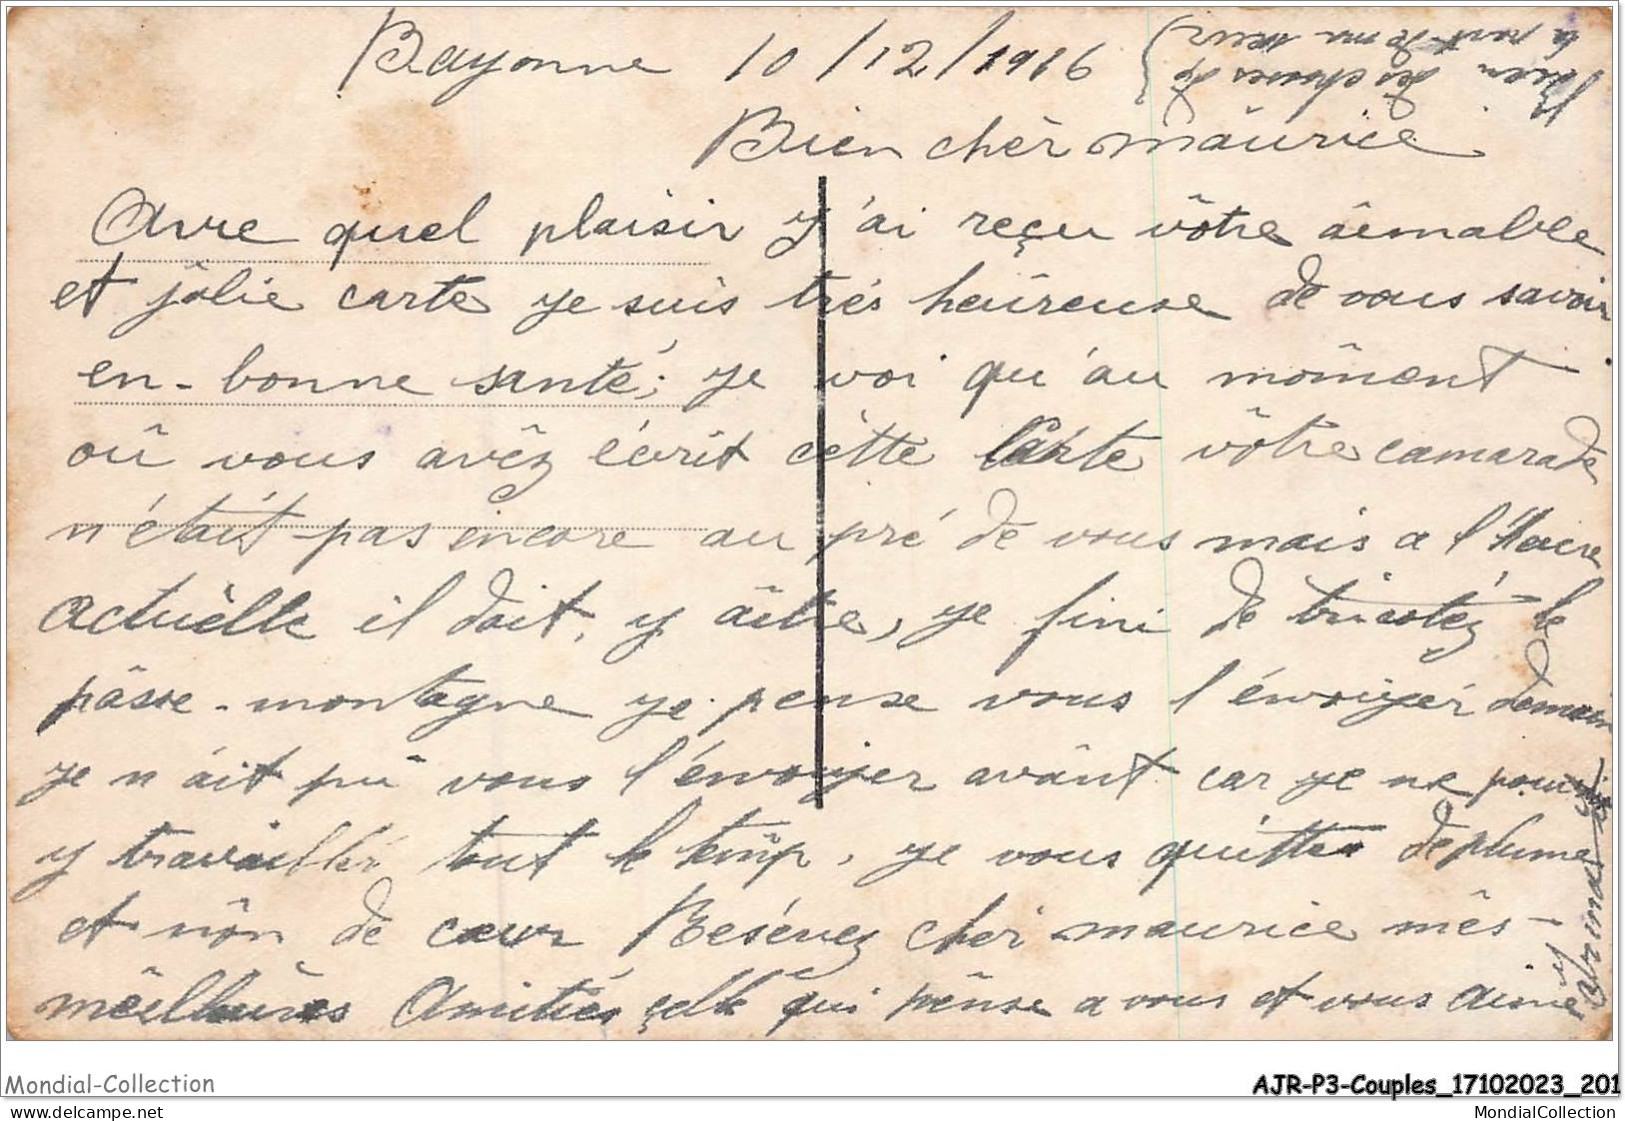 Bayonne 10/12/1916
Bien des choses de
la part de ma sœur
Bien chèr maûrice
Avre quel plaisir y'ai reçu vôtre âimable
et jôlie carte ye suis trés heûreuse de vous savoir
en-bonne santé; ye voi qu'âu môment
oû vous avêz écrit cètte carte vôtre camarade
n'était pas encore au pré de vous mais a l'Hocre
actuèlle il doit, y âitre, ye fini de tricotéz le
pâsse-montagne ye pense vous l'énvoiyér demain
ye n'âit pû vous l'énvoyer avânt car ye ne pouvais
y travaillér tout le temp, ye vous quitte de plume
et nôn de cœur Resévez chér maurice mês
mêilleures Amitiés çelle qui pênse a vous et vous aime
Mondial-Collection
AJR-P3-Couples_17102023_201
MondialCollection